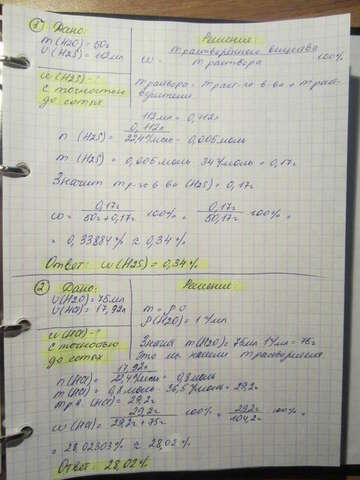 ① Дано:
m(H2O) = 50г
V(H2S) = 112мл
w(H2S) - ?
с точностью
до сотых
Решение:
w = m растворённого вещества / m раствора 100%
m раствора = m раст-го в-ва + m раст-
ворителя
112мл = 0,112л
n (H2S) = 0,112л / 22,4л/моль = 0,005моль
m (H2S) = 0,005моль · 34г/моль = 0,17г
Значит m р-го в-ва (H2S) = 0,17г
w = 0,17г / 50г + 0,17г 100% = 0,17г / 50,17г 100% =
= 0,33884% ≈ 0,34%
Ответ: w(H2S) = 0,34%
② Дано:
V(H2O) = 75мл
V(HCl) = 17,92л
w(HCl) - ?
с точностью
до сотых
Решение:
m = ρ · V
ρ(H2O) = 1г/мл
Значит m(H2O) = 75мл · 1г/мл = 75г
Это мы нашли m растворителя
n(HCl) = 17,92л / 22,4л/моль = 0,8моль
m(HCl) = 0,8моль · 36,5г/моль = 29,2г
m р.в. (HCl) = 29,2г
w(HCl) = 29,2г / 29,2г + 75г 100% = 29,2г / 104,2г 100% =
= 28,02303% ≈ 28,02%
Ответ: 28,02%